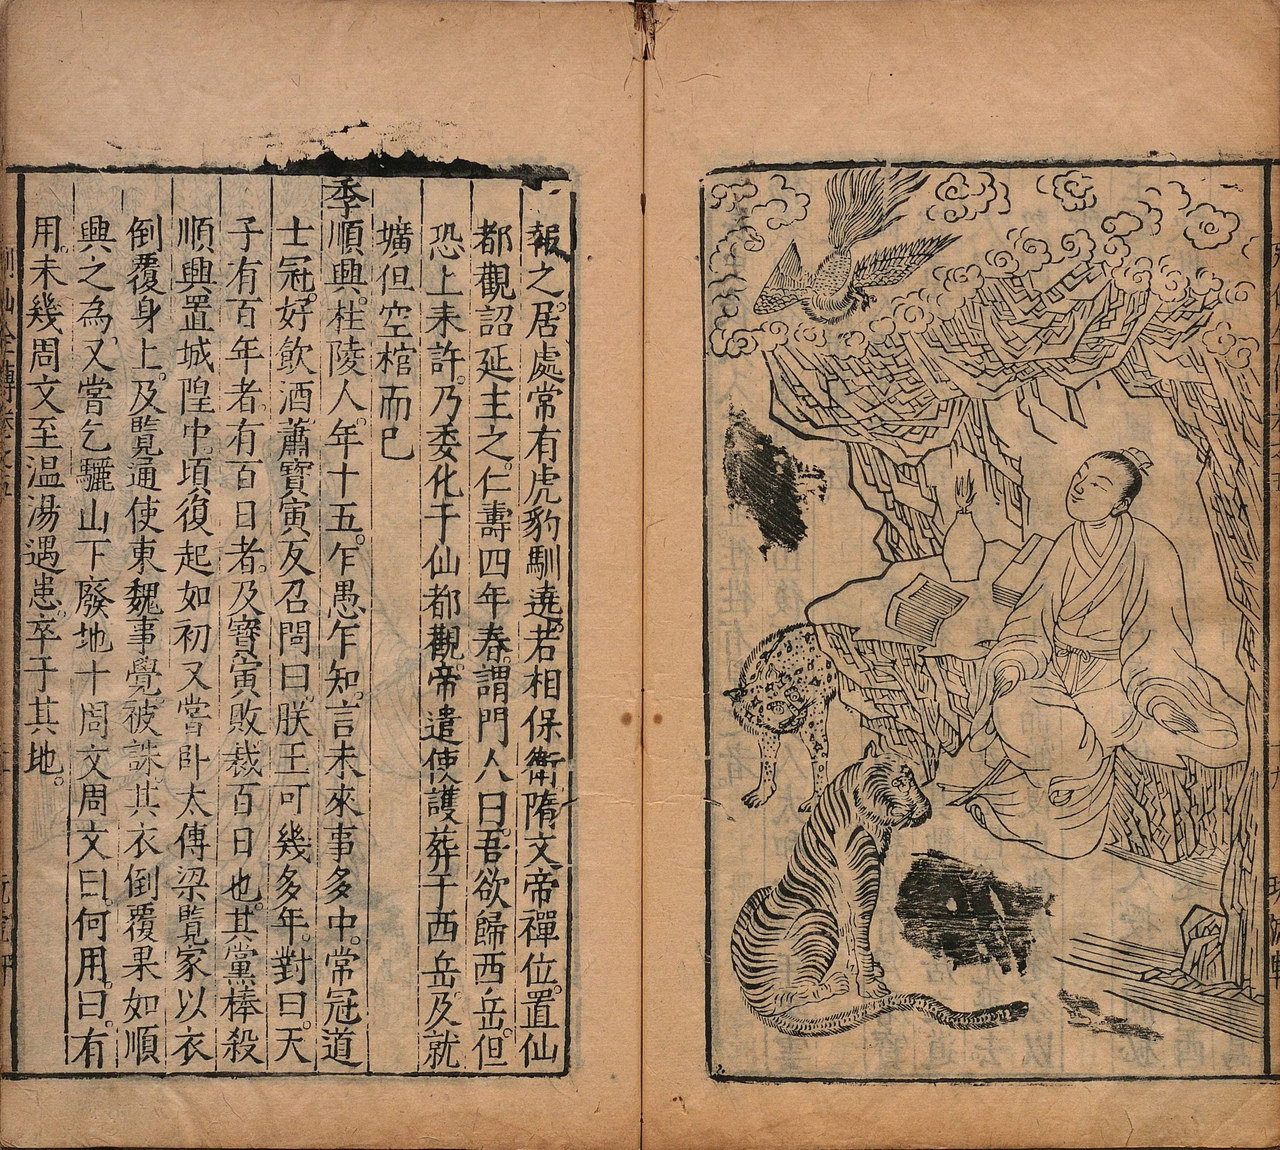 報之居處常有虎豹馴遶若相保衛隋文帝禪位置仙
都觀詔延主之仁壽四年春謂門人曰吾欲歸西岳但
恐上未許乃委化于仙都觀帝遣使護葬于西岳及就
壙但空棺而已
季順興桂陵人年十五乍愚乍知言未來事多中常冠道
士冠好飲酒蕭寶寅反召問曰朕王可幾多年對曰天
子有百年者有百日者及寶寅敗裁百日也其黨棒殺
順興置城隍中頃復起如初又嘗卧太傅梁覽家以衣
倒覆身上及覽通使東魏事覺被誅其衣倒覆果如順
興之為又嘗乞驪山下廢地十周文周文曰何用曰有
用未幾周文至温湯遇患卒于其地